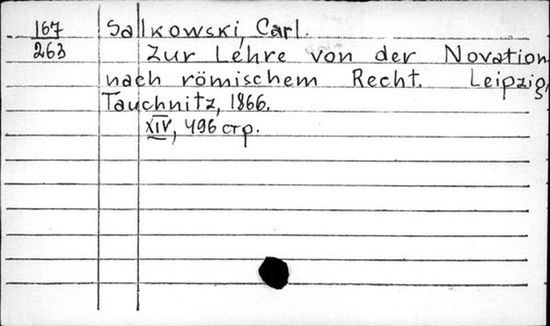 167 Salkowski, Carl.
263 Zur Lehre von der Novation
nach römischem Recht. Leipzig,
Tauchnitz, 1866.
XIV, 496 стр.